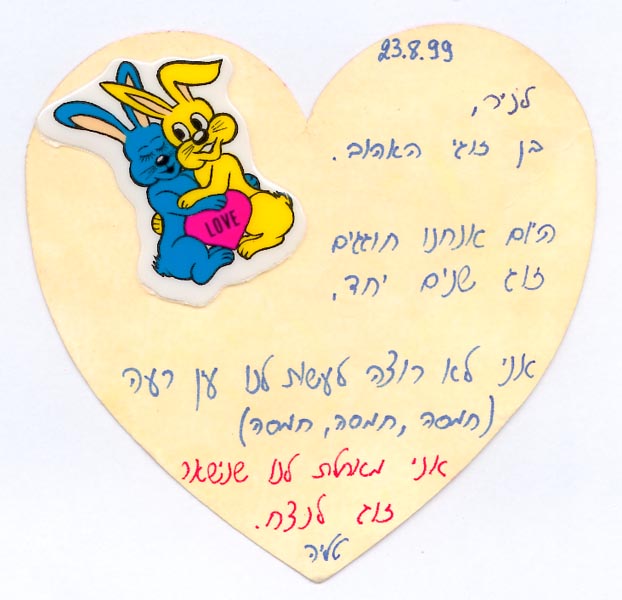 23.8.99
לניר,
בן זוגי האהוב.
LOVE
היום אנחנו חוגגים
זוג שנים יחד,
אני לא רוצה לעשות לנו עין רעה
(חמסה, חמסה, חמסה)
אני מאחלת לנו שנישאר
זוג לנצח.
טליה